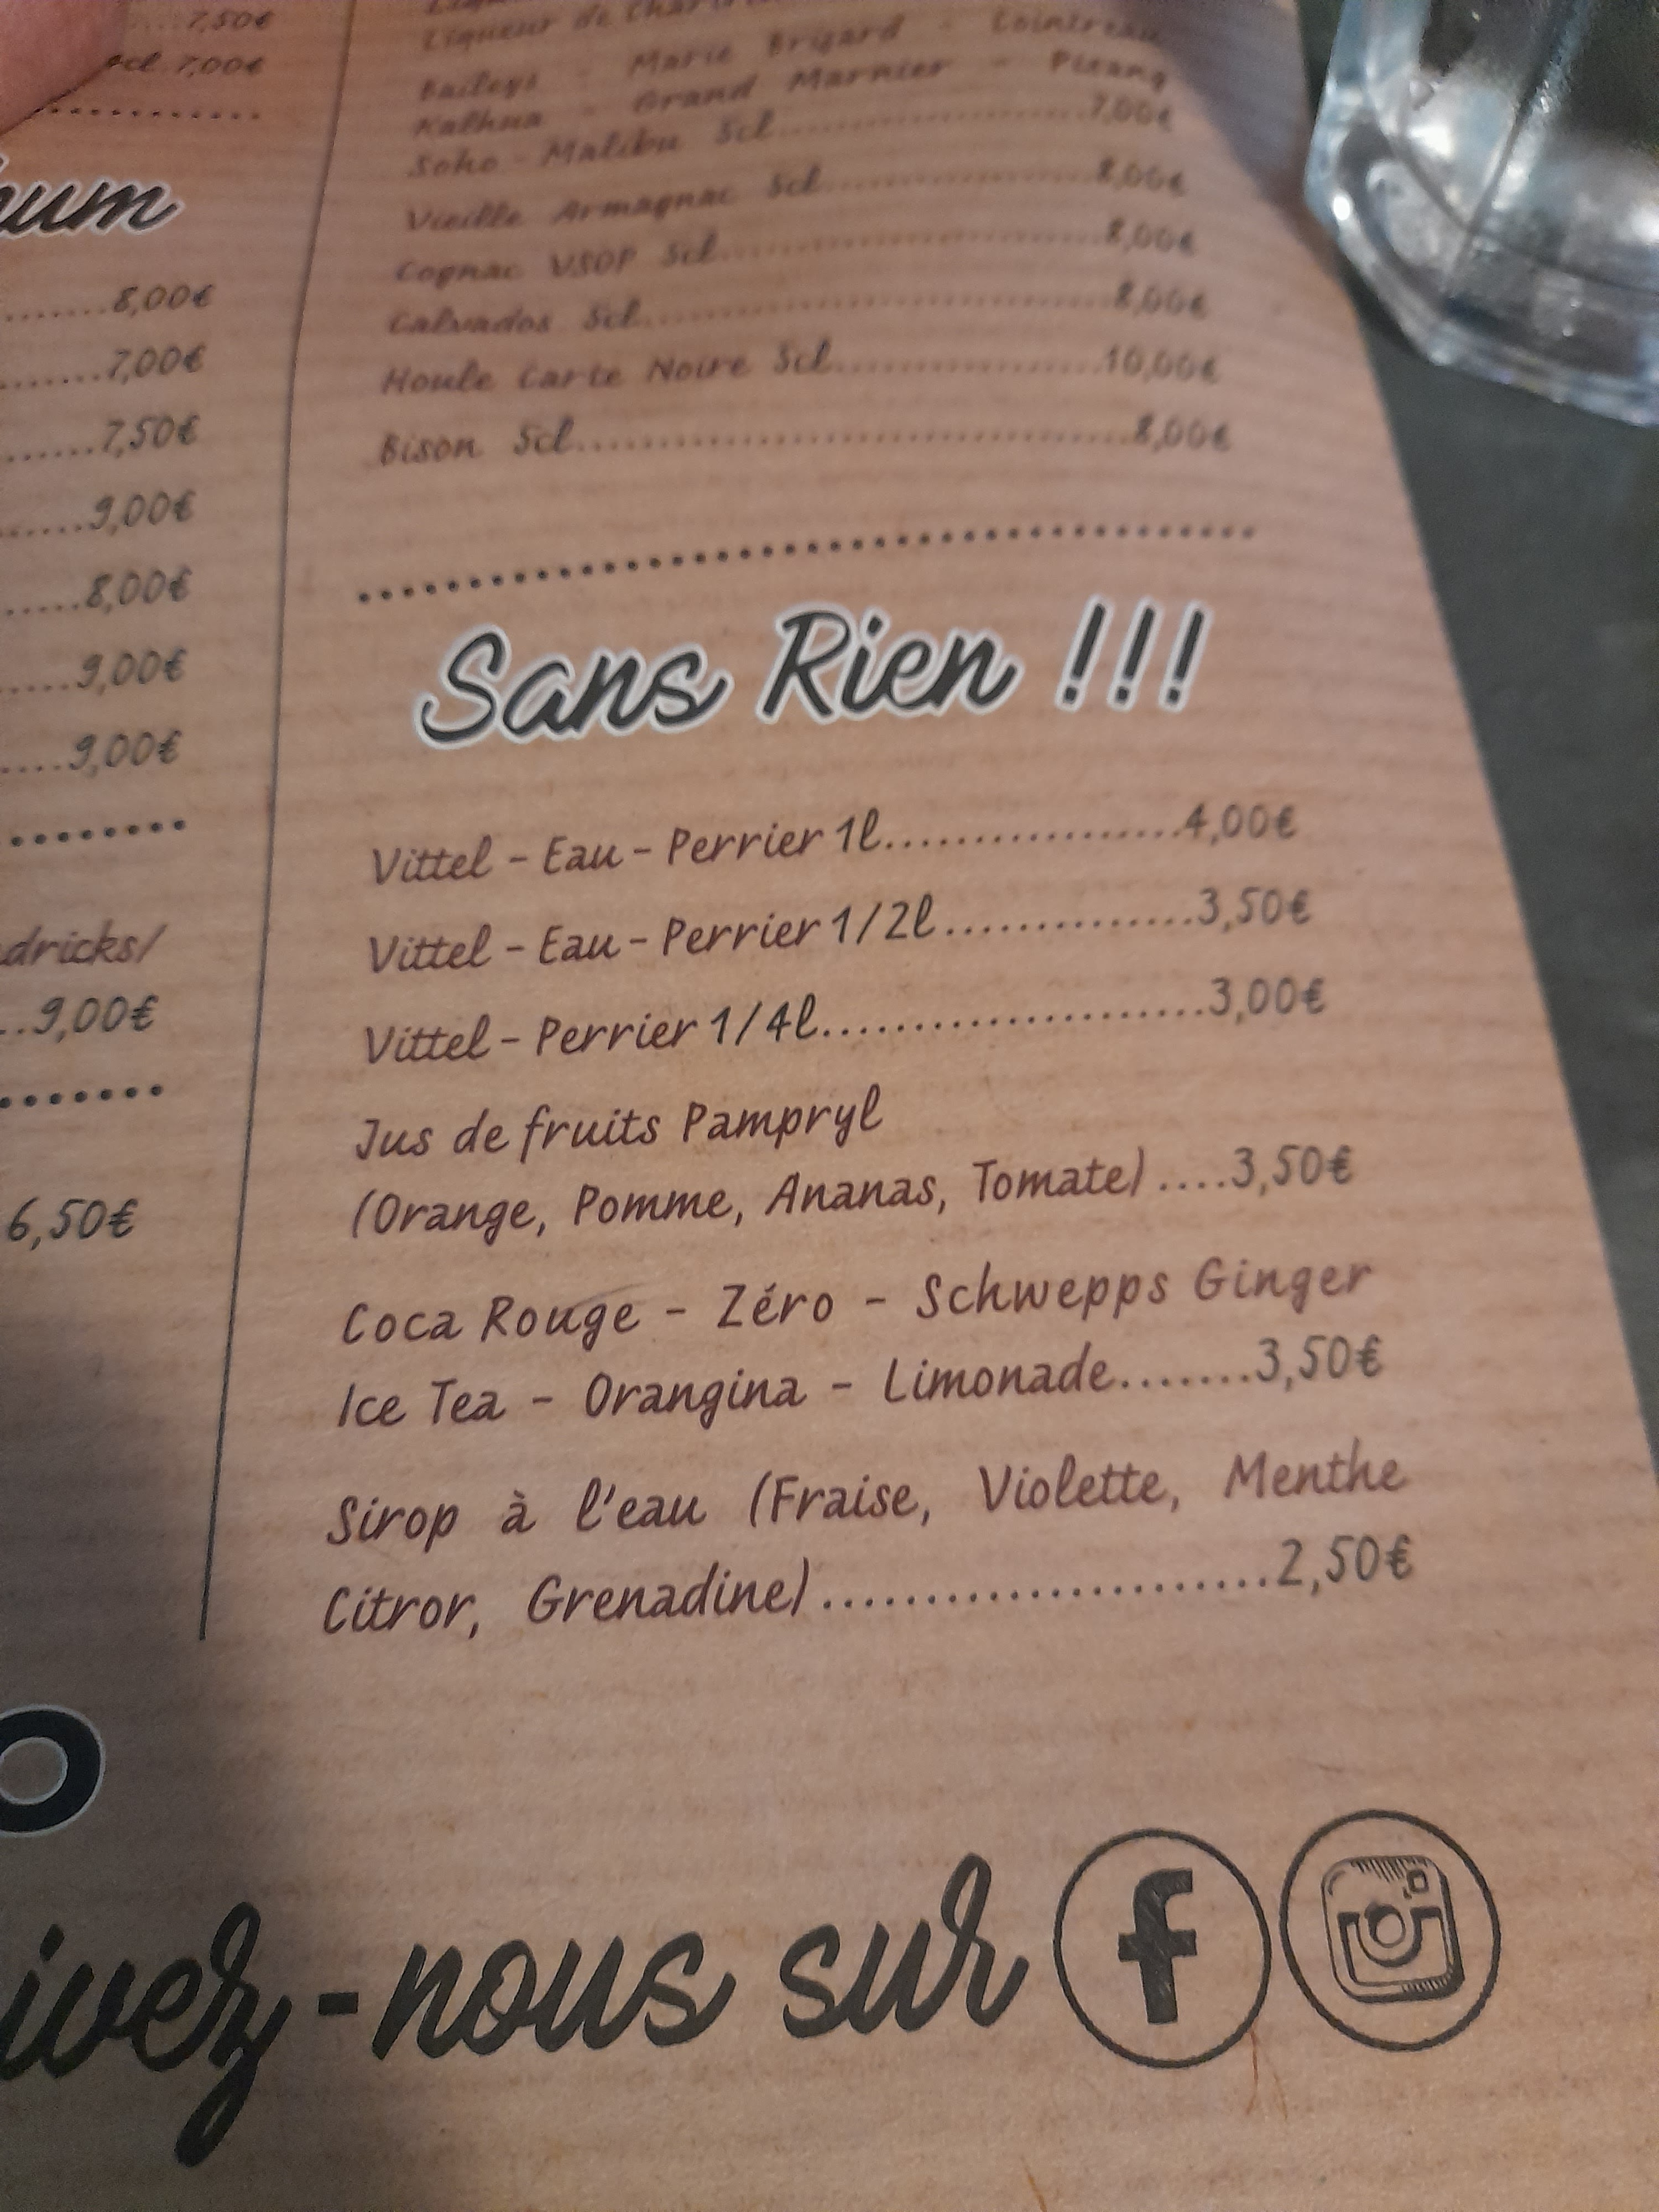 7,50€
5cl 7,00€
hum
8,00€
7,00€
7,50€
9,00€
8,00€
9,00€
9,00€
dricks/
9,00€
6,50€
O
Liqueur de
Baileys - Marie Brizard - Cointreau
Kalhua - Grand Marnier - Pisang
Soho - Malibu 5cl....................7,00€
Vieille Armagnac 5cl....................8,00€
Cognac VSOP 5cl....................8,00€
Calvados 5cl....................8,00€
Houle Carte Noire 5cl....................10,00€
Bison 5cl....................8,00€
Sans Rien !!!
Vittel - Eau - Perrier 1l..................4,00€
Vittel - Eau - Perrier 1/2l...............3,50€
Vittel - Perrier 1/4l.......................3,00€
Jus de fruits Pampryl
(Orange, Pomme, Ananas, Tomate) ....3,50€
Coca Rouge - Zéro - Schwepps Ginger
Ice Tea - Orangina - Limonade........3,50€
Sirop à l'eau (Fraise, Violette, Menthe
Citror, Grenadine) ..........................2,50€
ivez-nous sur f